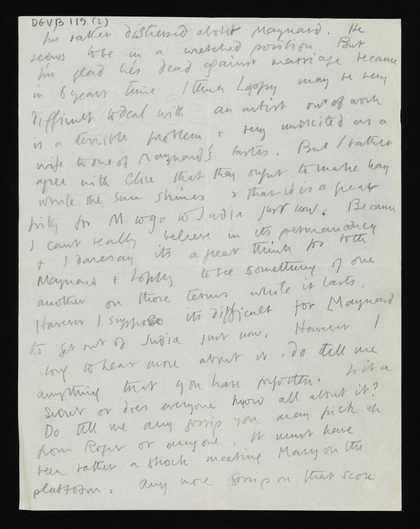 DGVB 119 (2)
I'm rather distressed about Maynard. He
seems to be in a wretched position. But
I'm glad he's dead against marriage because
in 6 years time I think Loppy may be very
difficult to deal with an artist out of work
is a terrible problem + very unsuited as a
wife to one of Maynard's tastes. But I rather
agree with Clive that they ought to make hay
while the sun shines + that it is a great
pity for M to go to India just now. Because
I can't really believe in its permanency
+ I daresay its a great think for both
Maynard + Loppy to see something of one
another on those terms while it lasts.
However I suppose its difficult for Maynard
to get out of India just now. However I
long to hear more about it. do tell me
anything that you have
secret or does everyone know all about it?
Do tell me any gossip you may pick up
from Roger or anyone. It must have
been rather a shock meeting Mary on the
platform. Any more gossip on that score